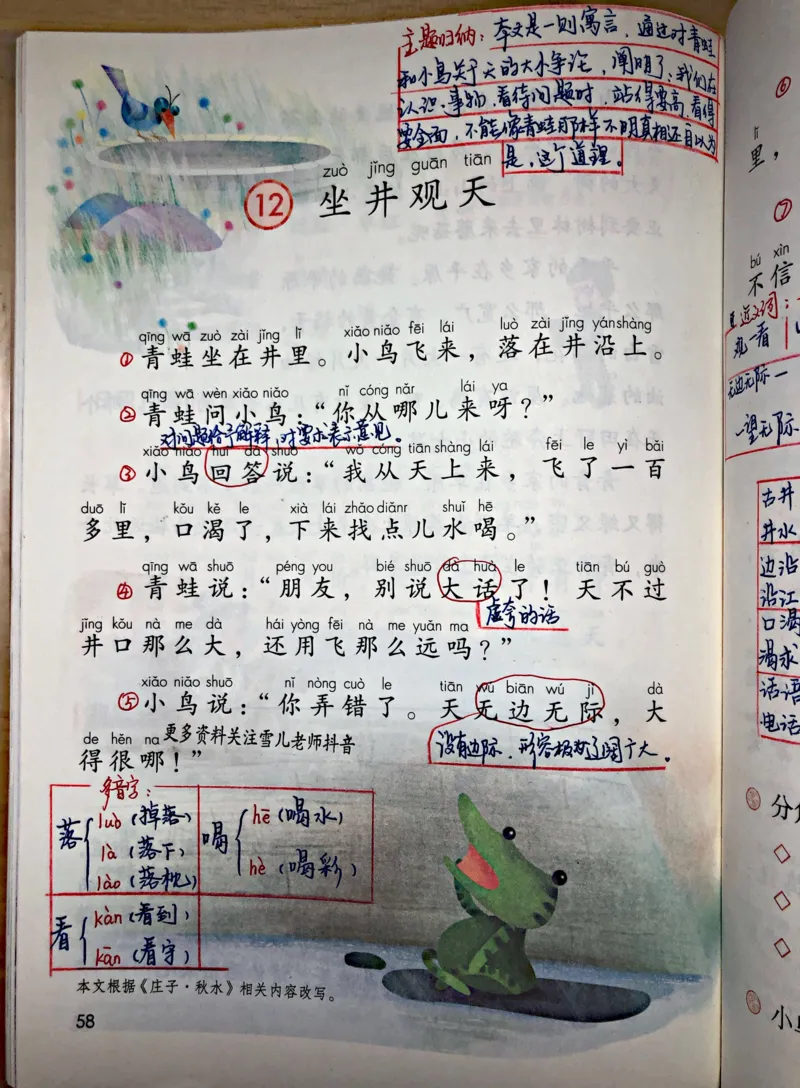 主题归纳：本文是一则寓言，通过对青蛙
和小鸟关于天的大小争论，阐明了：我们在
认识事物，看待问题时，站得要高，看得
要全面，不能像青蛙那样不明真相还自以为
是，这个道理。
zuò jǐng guān tiān
12 坐井观天
qīng wā zuò zài jǐng lǐ xiǎo niǎo fēi lái luò zài jǐng yán shàng
①青蛙坐在井里。小鸟飞来，落在井沿上。
qīng wā wèn xiǎo niǎo nǐ cóng nǎr lái ya
②青蛙问小鸟：“你从哪儿来呀？”
对问题给予解释，对要求表示意见。
xiǎo niǎo huí dá shuō wǒ cóng tiān shàng lái fēi le yì bǎi
③小鸟回答说：“我从天上来，飞了一百
duō lǐ kǒu kě le xià lái zhǎo diǎnr shuǐ hē
多里，口渴了，下来找点儿水喝。”
qīng wā shuō péng you bié shuō dà huà le tiān bú guò
④青蛙说：“朋友，别说大话了！天不过
虚夸的话
jǐng kǒu nà me dà hái yòng fēi nà me yuǎn ma
井口那么大，还用飞那么远吗？”
xiǎo niǎo shuō nǐ nòng cuò le tiān wú biān wú jì dà
⑤小鸟说：“你弄错了。天无边无际，大
de hěn na
得很哪！”
更多资料关注雪儿老师抖音
没有边际，形容极为辽阔广大。
多音字：
落 luò（掉落）
là（落下）
lào（落枕）
喝 hē（喝水）
hè（喝彩）
看 kàn（看到）
kān（看守）
本文根据《庄子·秋水》相关内容改写。
58
⑥
lǐ
里，
⑦
bú xìn
不信
近义词：
观—看
无边无际—
一望无际
古井
井水
边沿
沿江
口渴
渴求
话语
电话